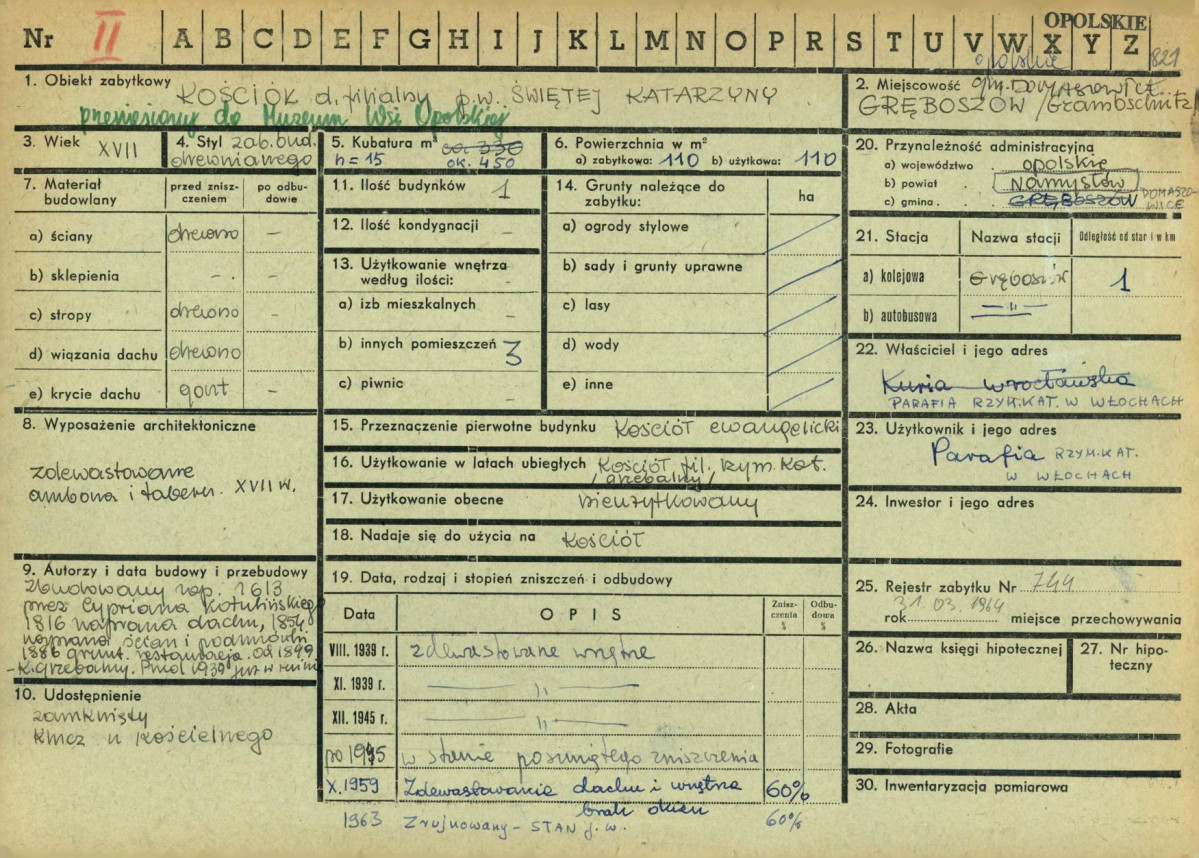 OPOLSKIE
Nr II A B C D E F G H I J K L M N O P R S T U V W X Y Z
opolskie 821
1. Obiekt zabytkowy KOŚCIÓŁ d. filialny p.w. ŚWIĘTEJ KATARZYNY
przeniesiony do Muzeum Wsi Opolskiej
2. Miejscowość gm. DOMASZOWICE
GRĘBOSZÓW /Grambschütz/
3. Wiek XVII
4. Styl zab. bud.
drewnianego
5. Kubatura m³ ca. 330
h = 15 ok. 450
6. Powierzchnia w m²
a) zabytkowa: 110 b) użytkowa: 110
7. Materiał budowlany
przed zniszczeniem
po odbudowie
a) ściany drewno –
b) sklepienia – –
c) stropy drewno –
d) wiązania dachu drewno –
e) krycie dachu gont –
8. Wyposażenie architektoniczne
zdewastowane
ambona i tabern. XVII w.
9. Autorzy i data budowy i przebudowy
Zbudowany rop. 1613
przez Cypriana Kotulińskiego
1816 naprawa dachu, 1854
naprawa ścian i podmurówki
1886 grunt. restauracja. Od 1899
– k. grzebalny. Przed 1939 już w ruinie
10. Udostępnienie
zamknięty
klucz u kościelnego
11. Ilość budynków 1
12. Ilość kondygnacji –
13. Użytkowanie wnętrza
według ilości: –
a) izb mieszkalnych –
b) innych pomieszczeń 3
c) piwnic –
14. Grunty należące do
zabytku: ha
a) ogrody stylowe
b) sady i grunty uprawne
c) lasy
d) wody
e) inne
15. Przeznaczenie pierwotne budynku Kościół ewangelicki
16. Użytkowanie w latach ubiegłych Kościół fil. rzym. kat.
/grzebalny/
17. Użytkowanie obecne nieużytkowany
18. Nadaje się do użycia na Kościół
19. Data, rodzaj i stopień zniszczeń i odbudowy
Data OPIS Zniszczenia % Odbudowa %
VIII. 1939 r. zdewastowane wnętrze
XI. 1939 r. — „ —
XII. 1945 r. — „ —
po 1945 w stanie posuniętego zniszczenia
X. 1959 Zdewastowanie dachu i wnętrza 60%
brak okien
1963 Zrujnowany – STAN j.w. 60%
20. Przynależność administracyjna
a) województwo opolskie
b) powiat Namysłów
c) gmina GRĘBOSZÓW DOMASZOWICE
21. Stacja Nazwa stacji Odległość od star i w km
a) kolejowa Gręboszów 1
b) autobusowa — „ —
22. Właściciel i jego adres
Kuria wrocławska
PARAFIA RZYM.KAT. W WŁOCHACH
23. Użytkownik i jego adres
Parafia RZYM.KAT.
W WŁOCHACH
24. Inwestor i jego adres
25. Rejestr zabytku Nr 744
31. 03. 1964
rok miejsce przechowywania
26. Nazwa księgi hipotecznej
27. Nr hipoteczny
28. Akta
29. Fotografie
30. Inwentaryzacja pomiarowa